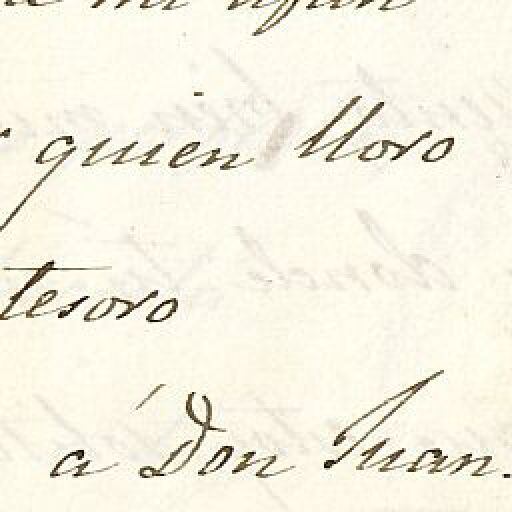 mi afan
quien lloro
tesoro
á Don Juan.